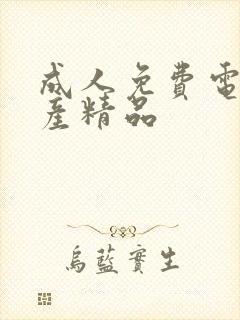 成人免費電
産精品
烏藍實生